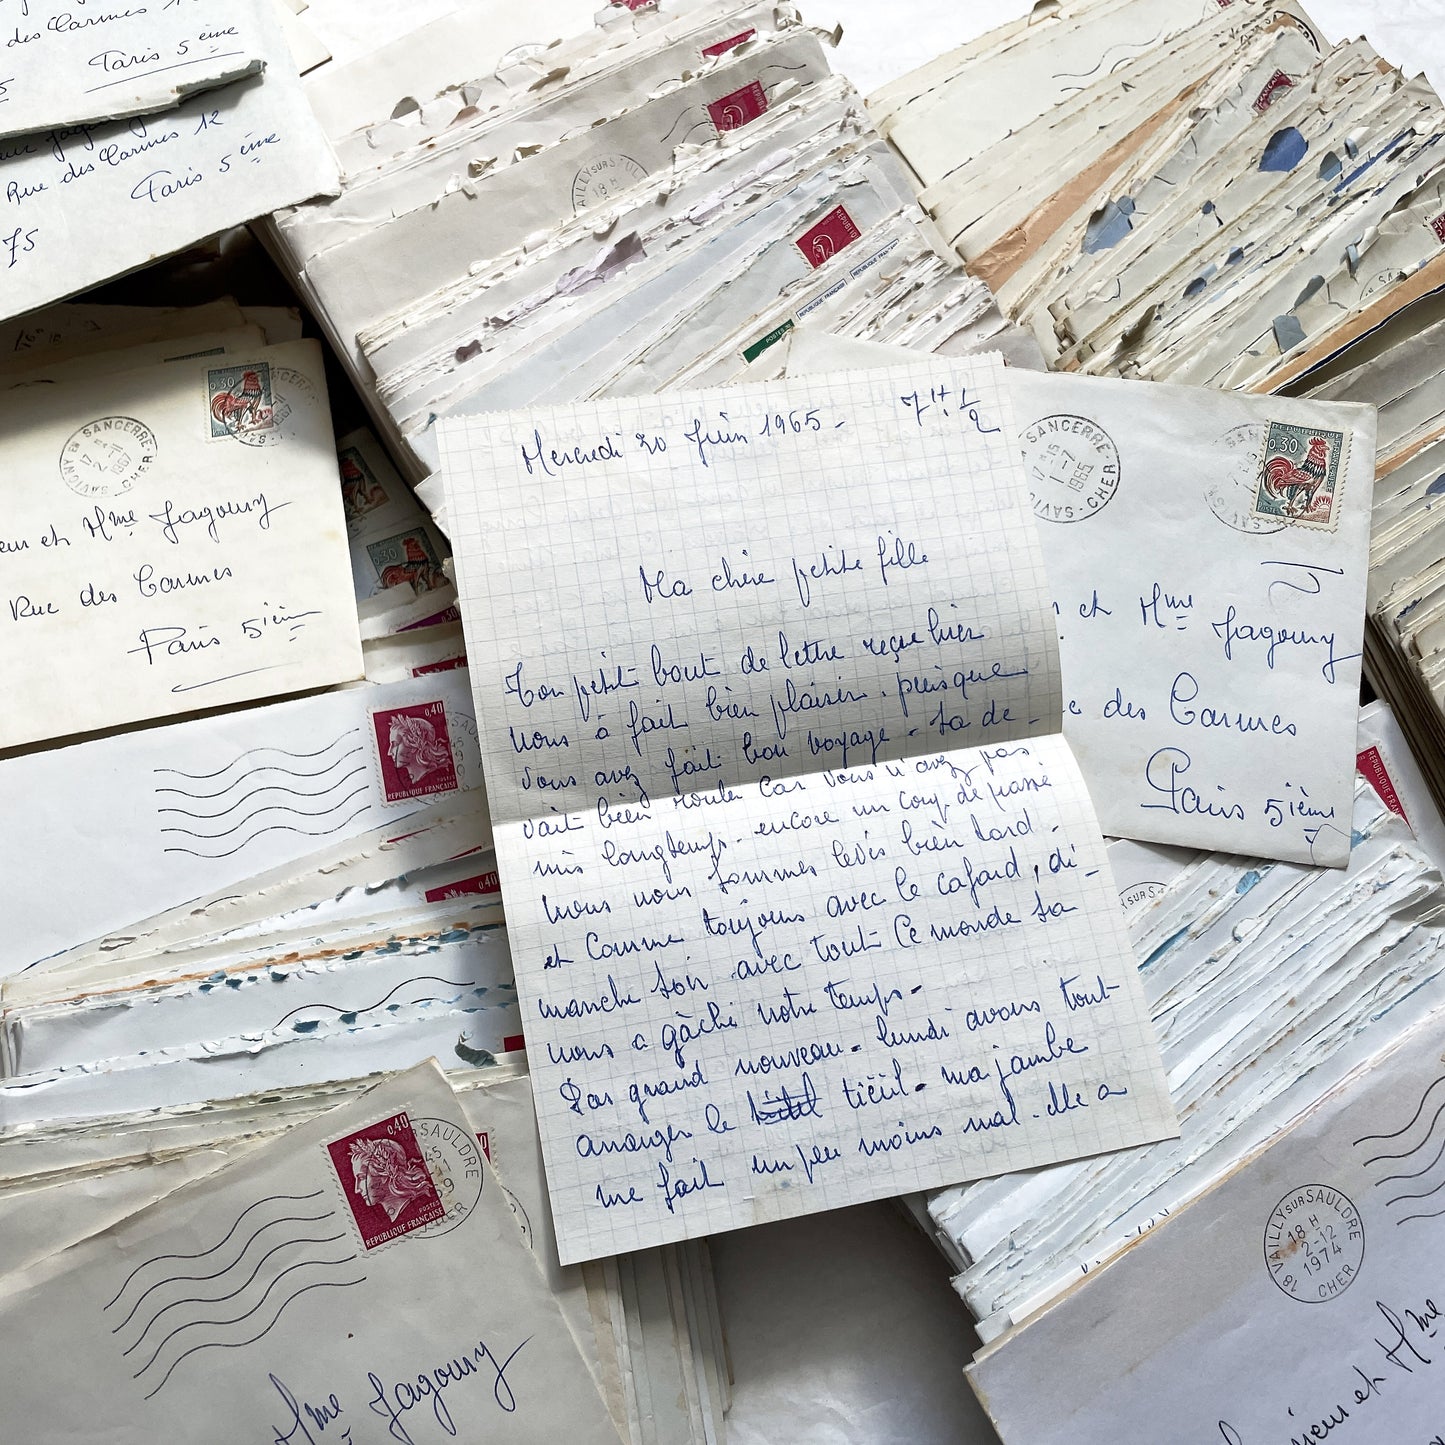 des Carmes 12
Paris 5 ème
5
Rue des Carmes 12
Paris 5 ème
75
SAVIGNY EN SANCERRE
17 H
2-11
1967
CHER
0,30
et Mme Jagourry
Rue des Carmes
Paris 5 ième
0,40
POSTES
REPUBLIQUE FRANÇAISE
0,40
0,30
AILLY SUR SAUL
18 H
REPUBLIQUE FRANÇAISE
POSTES
Mercredi 30 Juin 1965 - 7 H. 1/2
Ma chère petite fille
Ton petit bout de lettre reçue hier
nous à fait bien plaisir. puisque
vous avez fait bon voyage. Sa de-
vait bien rouler car vous n'avez pas
mis longtemps - encore un coup de passé
nous nous sommes levés bien tard.
et comme toujours avec le cafard, di-
manche soir avec tout ce monde sa
nous a gâché notre temps -
Pas grand nouveau - lundi avons tout
arranger le tieüil - ma jambe
me fait un peu moins mal - elle a
SANCERRE
17 H 15
1-7
1965
SAVIG
CHER
0,30
et Mme Jagourry
des Carmes
Paris 5 ième
SUR SA
0,40
POSTES
REPUBLIQUE FRANÇAISE
SAULDRE
CHER
Mme Jagourry
18 VAILLY SUR SAULDRE
18 H
2-12
1974
CHER
et Mme